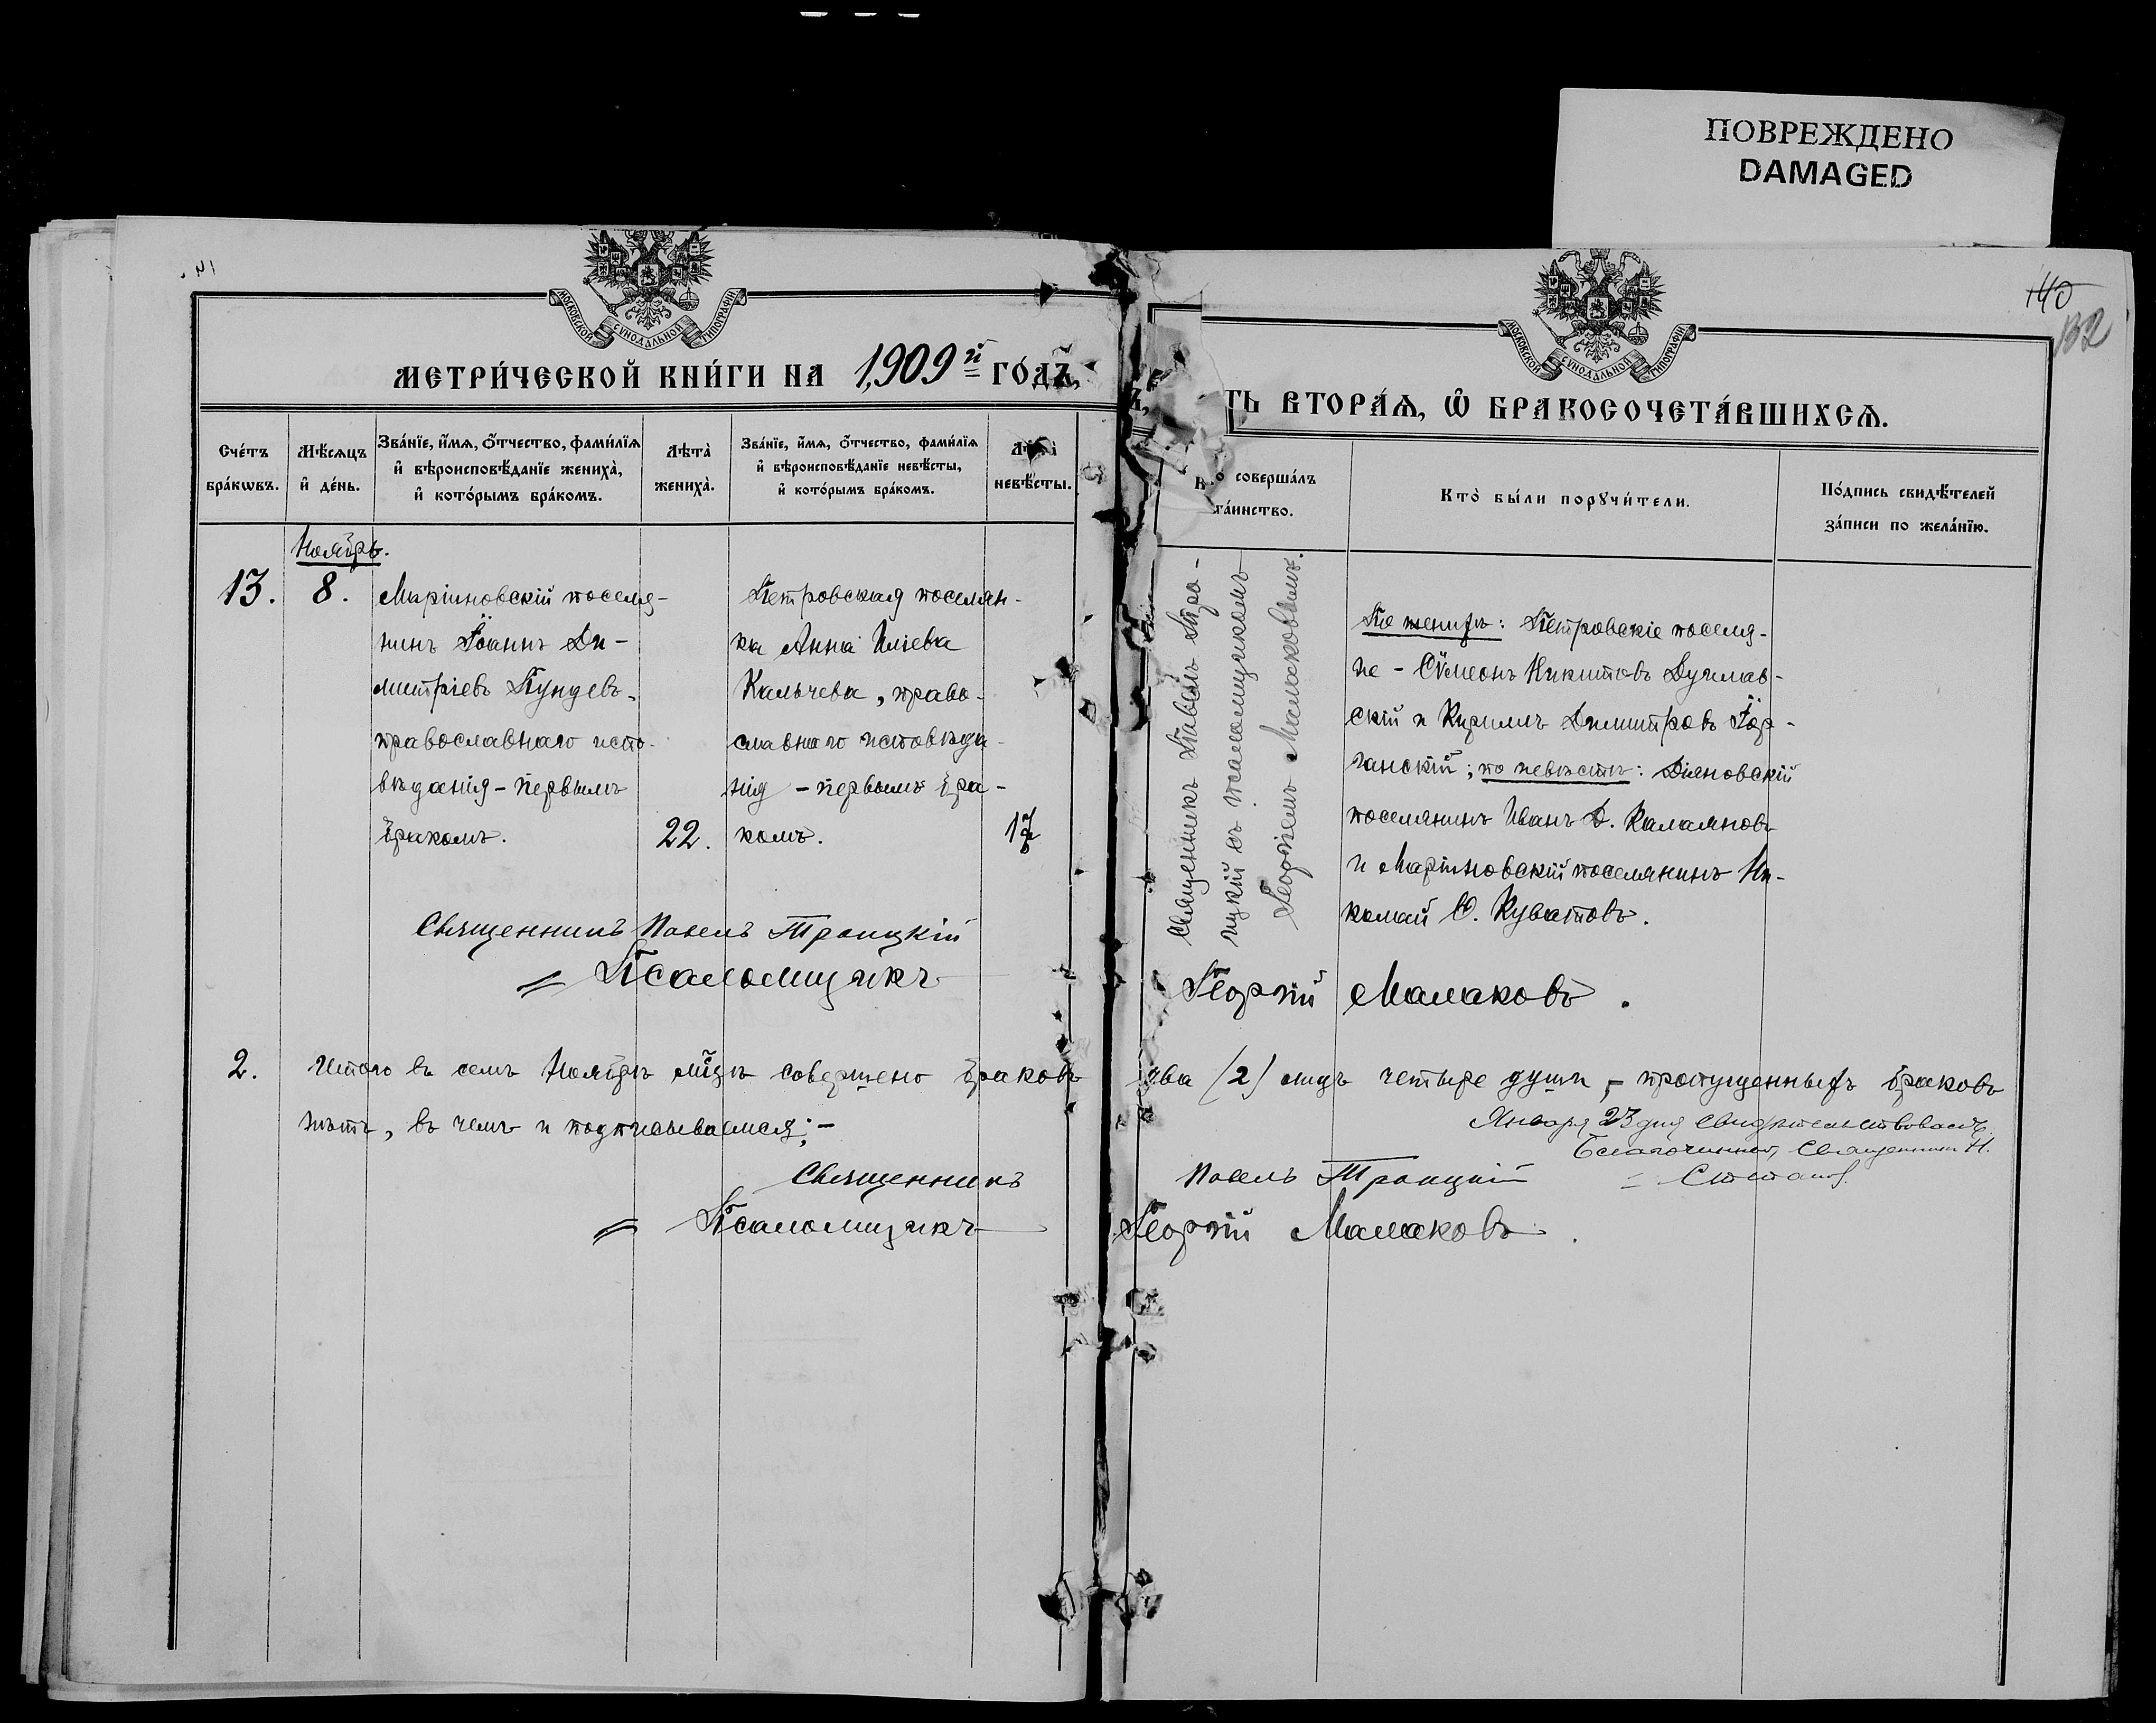 ПОВРЕЖДЕНО
DAMAGED
140
132
МОСКОВСКОЙ СѴНОДАЛЬНОЙ ТИПОГРАФІИ
МЕТРИ́ЧЕСКОЙ КНИ́ГИ НА 1909й ГО́ДЪ,
МОСКОВСКОЙ СѴНОДАЛЬНОЙ ТИПОГРАФІИ
ТЬ ВТОРА́Ѧ, Ѽ БРАКОСОЧЕТА́ВШИХСѦ.
Сче́тъ
бра́кѡвъ.
Мѣ́сѧцъ
и҆ де́нь.
Зва́нїе, и҆́мѧ, ѻ҆́тчество, фами́лїѧ
и҆ вѣроисповѣ́данїе жениха̀,
и҆ кото́рымъ бра́комъ.
Лѣта̀
жениха̀.
Зва́нїе, и҆́мѧ, ѻ҆́тчество, фами́лїѧ
и҆ вѣроисповѣ́данїе невѣ́сты,
и҆ кото́рымъ бра́комъ.
невѣ́сты.
соверша́лъ
та́инство.
Кто̀ бы́ли порꙋчи́тели.
По́дпись свидѣ́телей
за́писи по жела́нїю.
Ноябрь.
13.
8.
Маріиновскій поселя-
нинъ Іоаннъ Ди-
митріевъ Пундевъ,
православнаго испо-
вѣданія - первымъ
бракомъ.
22.
Петровская поселян-
ка Анна Иліева
Кальчева, право-
славнаго исповѣда-
нія - первымъ бра-
комъ.
17
Священникъ Павелъ Тро-
ицкій съ псаломщикомъ
Георгіемъ Малаковымъ.
По женихѣ: Петровскіе поселя-
не - Сѵмеонъ Никитовъ
скій и Кириллъ Димитровъ Гор-
ганскій; по невѣстѣ: Діановскій
поселянинъ Иванъ Д. Каламновъ
и Маріиновскій поселянинъ Ни-
колай С. Куватовъ.
Священникъ Павелъ Троицкій
〃 Псаломщикъ Георгій Малаковъ.
2.
Итого въ семъ Ноябрѣ мцѣ совершено браковъ два (2) лицъ четыре души, - пропущенныхъ браковъ
нѣтъ, въ чемъ и подписываемся: -
Января 23 дня свидѣтельствовалъ
Благочинный, Священникъ Н.
Священникъ Павелъ Троицкій
= Степановъ
〃 Псаломщикъ Георгій Малаковъ.